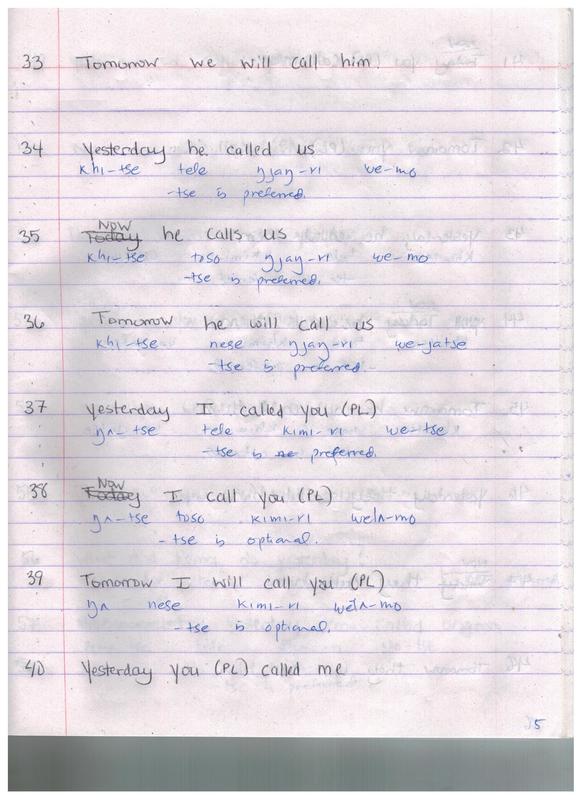 33 Tomorrow we will call him.
34 Yesterday he called us
khı-tse tele ŋjaŋ-rı we-mo
-tse is preferred.
Now
35 Today he calls us
khı-tse toso ŋjaŋ-rı we-mo
-tse is preferred.
36 Tomorrow he will call us
khı-tse nese ŋjaŋ-rı we-jatse
-tse is preferred
37 Yesterday I called you (PL)
ŋʌ-tse tele kimı-rı we-tse
-tse is preferred.
Now
38 Today I call you (PL)
ŋʌ-tse toso kimı-rı welʌ-mo
-tse is optional.
39 Tomorrow I will call you (PL)
ŋʌ nese kimı-rı welʌ-mo
-tse is optional.
40 Yesterday you (PL) called me
5